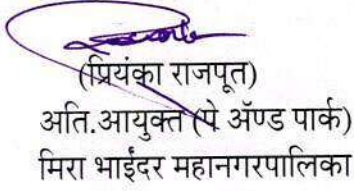 (प्रियंका राजपूत)
अति.आयुक्त (पे ॲण्ड पार्क)
मिरा भाईंदर महानगरपालिका